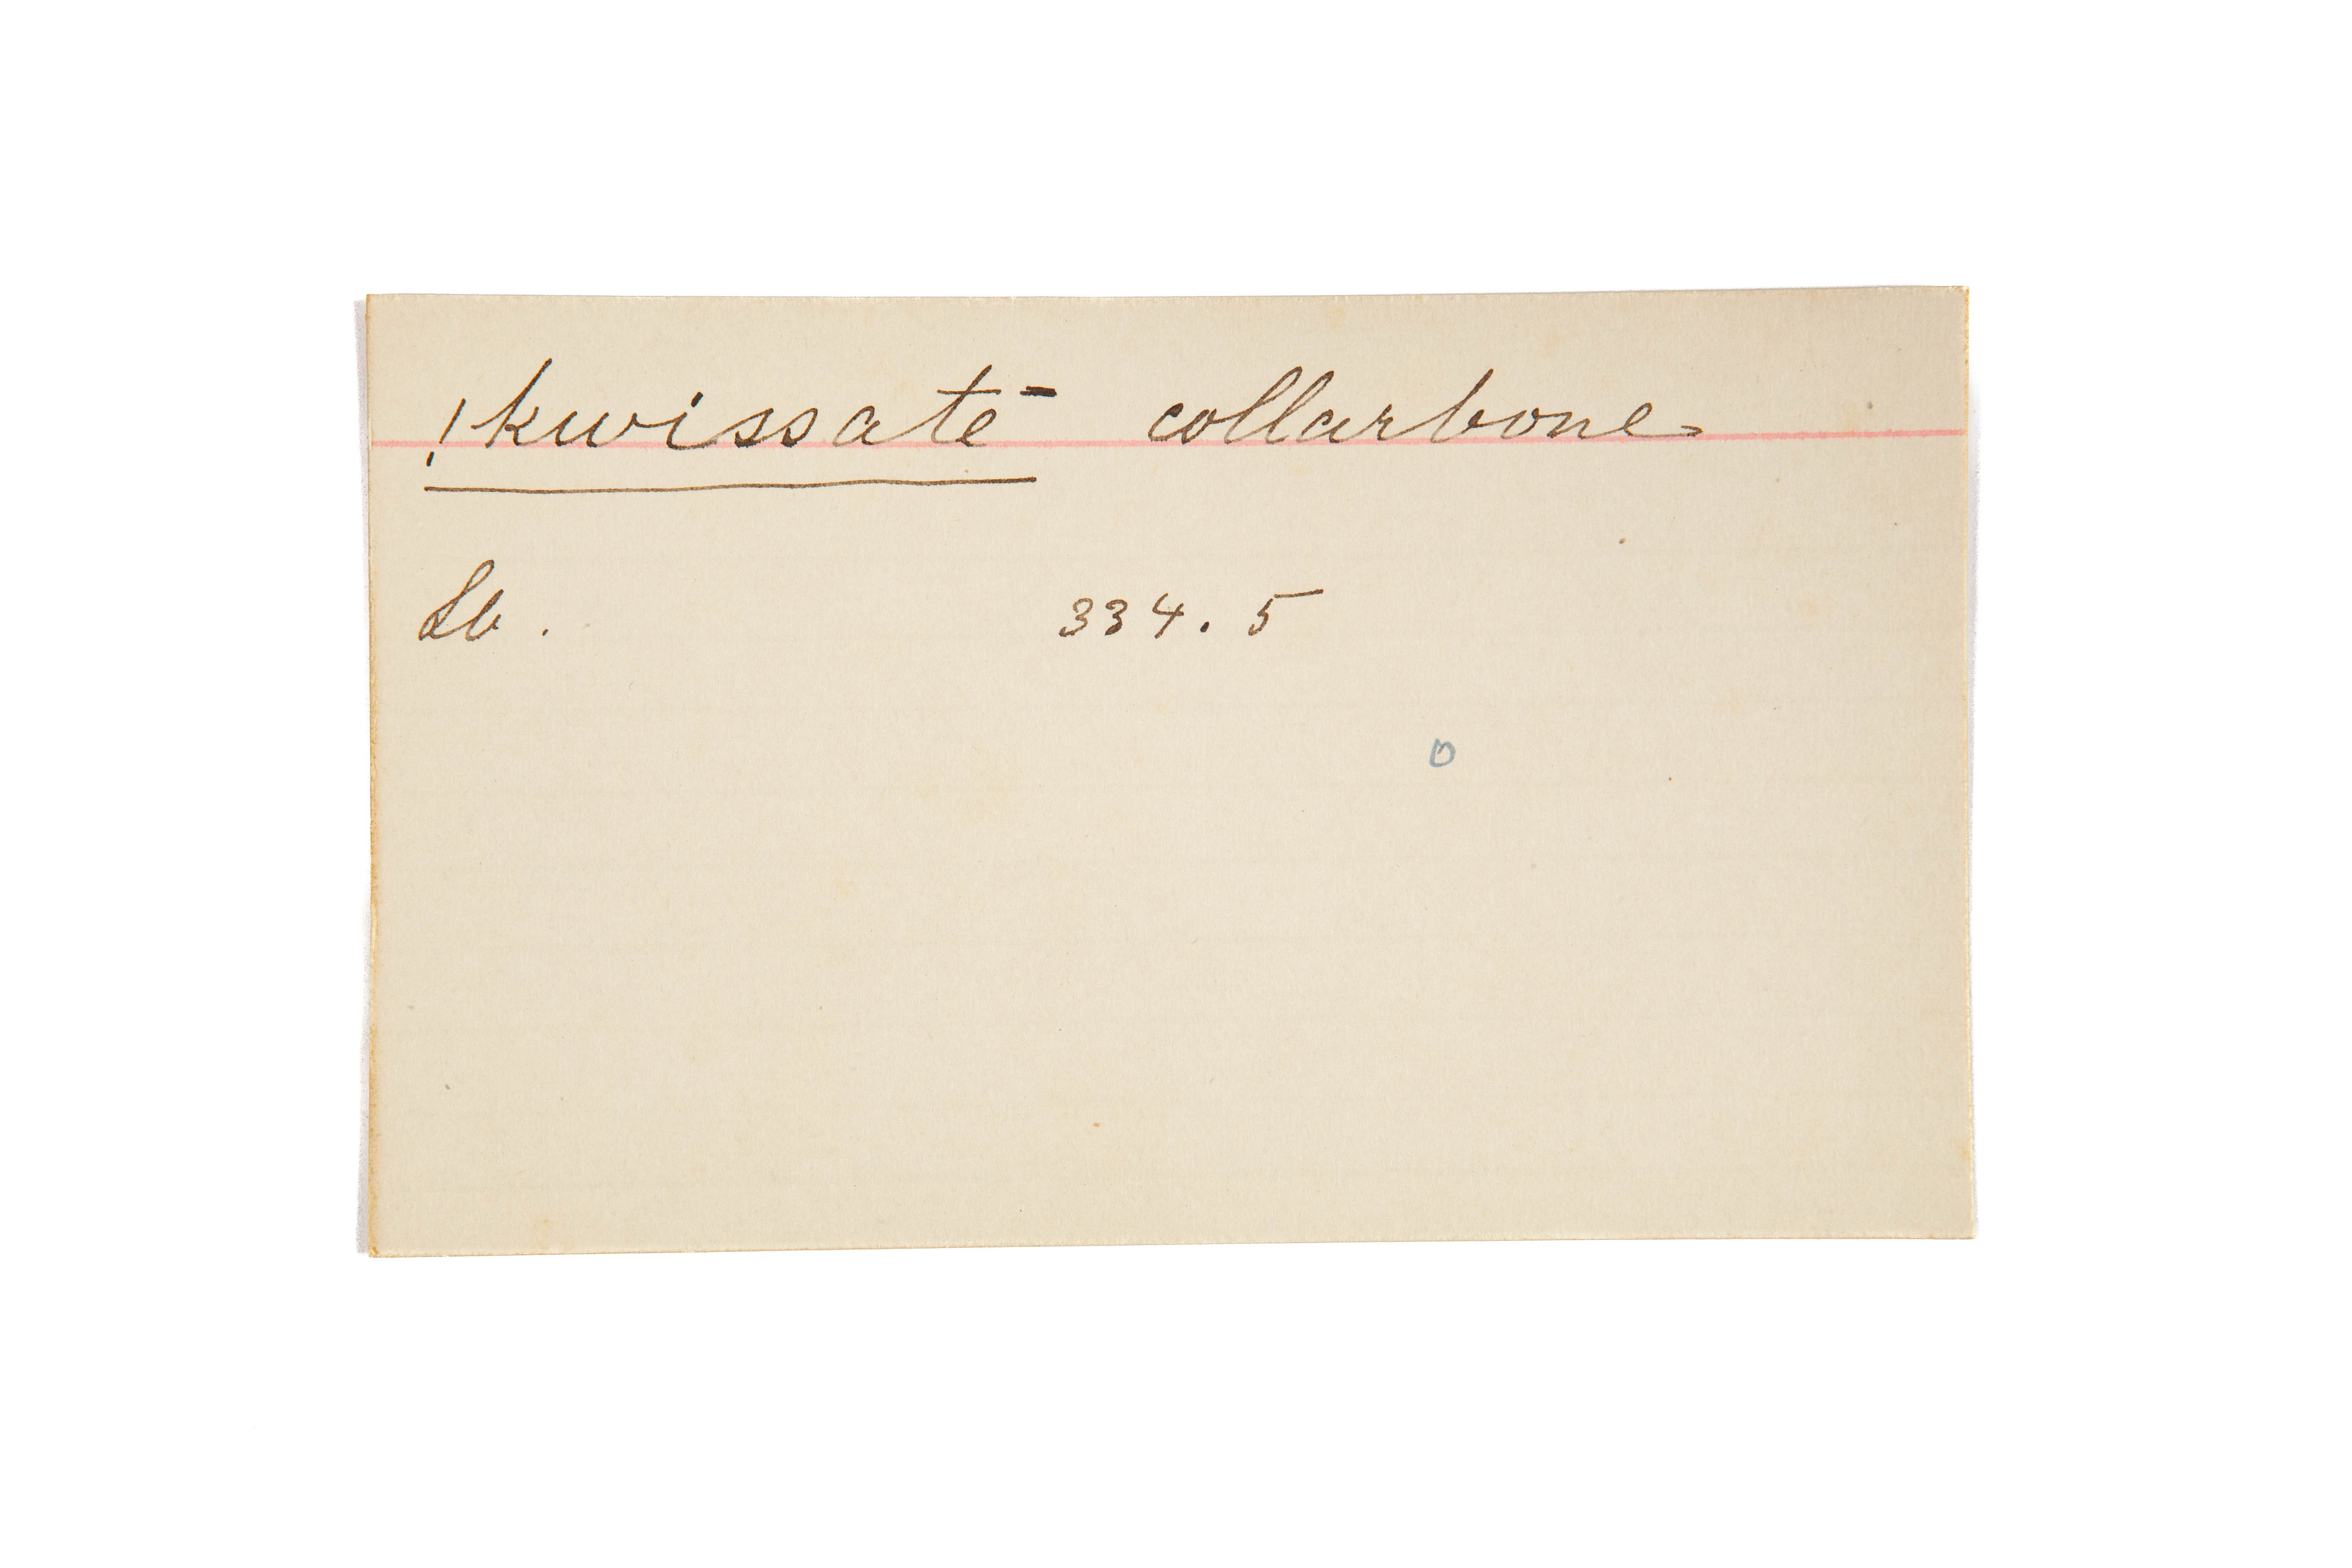 !kwissatē collarbone
Lb. 334.5
D